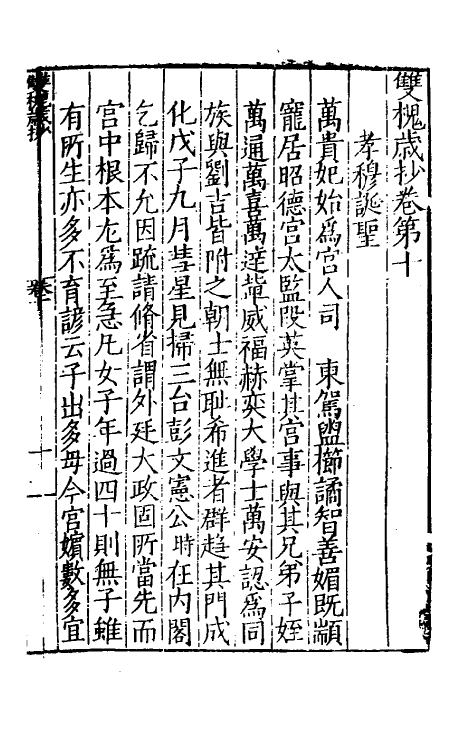 雙槐歲抄卷第十
孝穆誕聖
萬貴妃始爲宮人司　東駕盥櫛譎智善媚既顓
寵居昭德宮太監段英掌其宮事與其兄弟子姪
萬通萬喜萬達軰威福赫奕大學士萬安認爲同
族與劉吉皆附之朝士無耻希進者群趋其門成
化戊子九月彗星見掃三台彭文憲公時在内閣
乞歸不允因疏請脩省謂外廷大政固所當先而
宮中根本尤爲至急凡女子年過四十則無子雖
有所生亦多不育諺云子出多母今宮嬪數多宜
雙槐歲抄
卷十